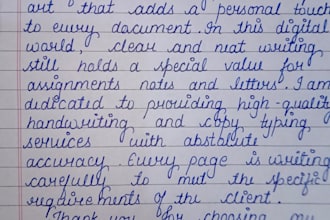 art that adds a personal touch
to every document. In this digital
world, clear and neat writing
still holds a special value for
assignments notes and letters. I am
dedicated to providing high-quality
handwriting and copy typing
services with abstblute
accuracy. Every page is writing
carefully to met the specific
requirements of the client.
Thank you for choosing my